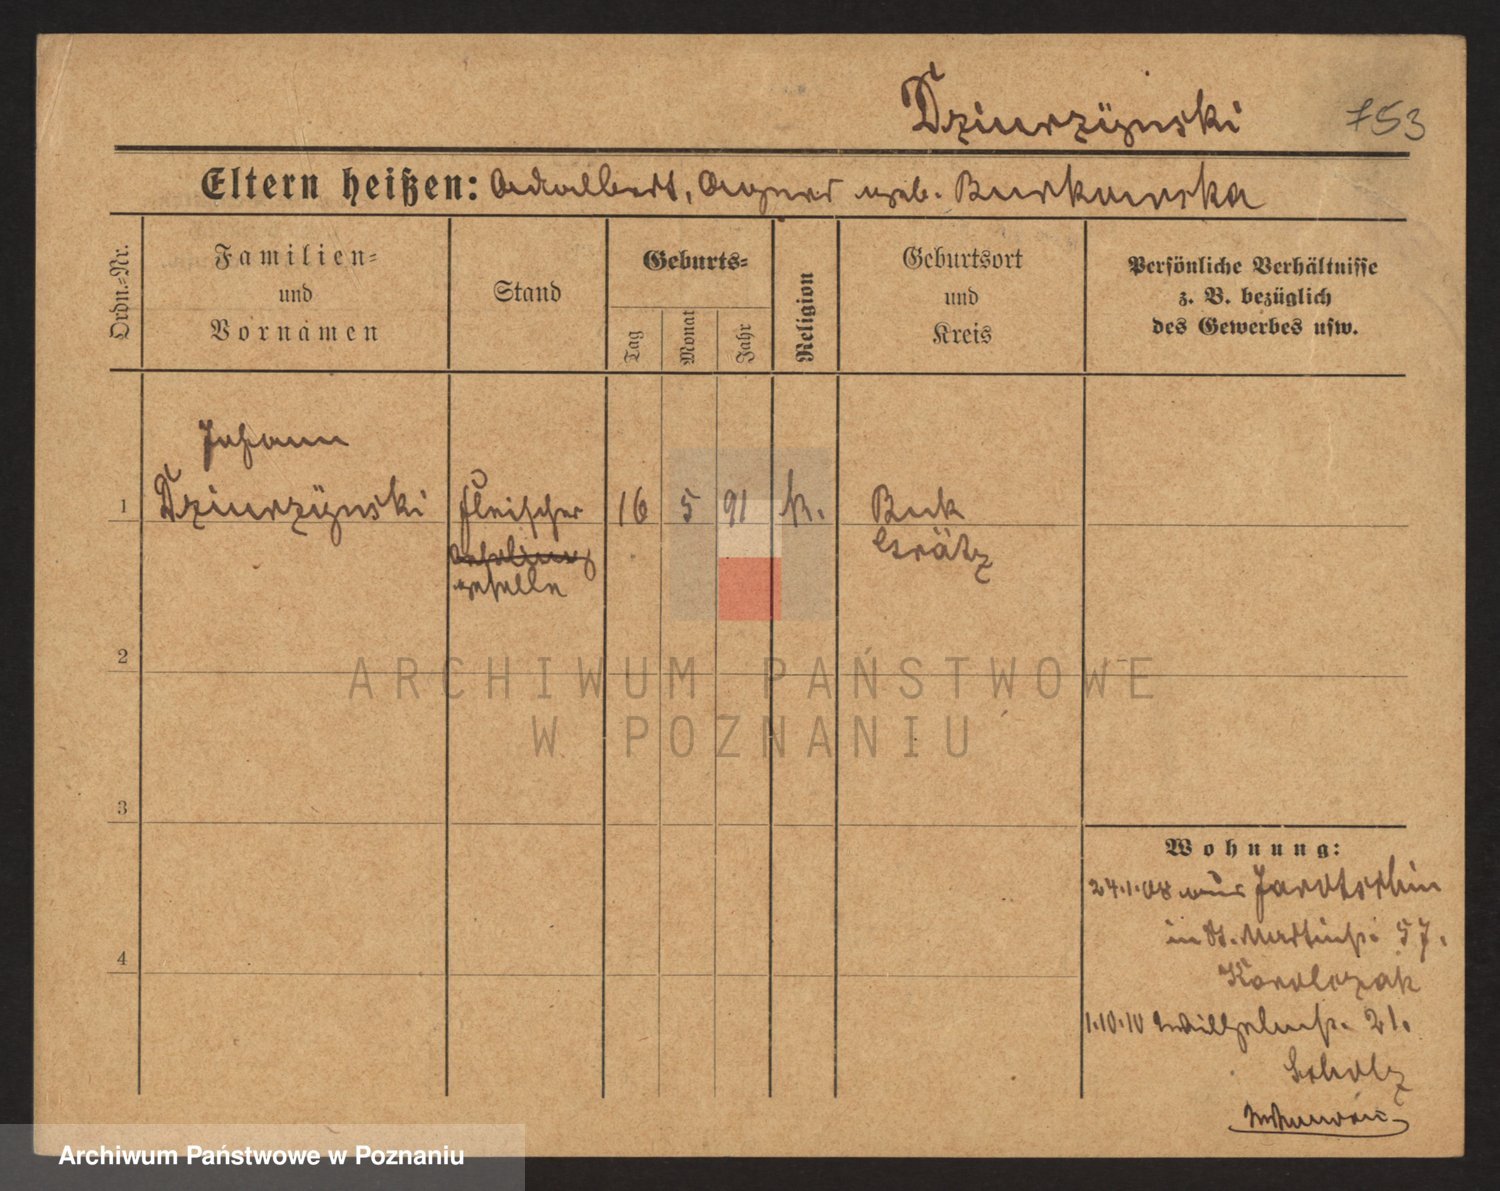 Dziurzÿnski 753
Eltern heißen: Adalbert, Agnes geb. Burkowska
Ordn.-Nr.
Familien-
und
Vornamen
Stand
Geburts-
Tag
Monat
Jahr
Religion
Geburtsort
und
Kreis
Persönliche Verhältnisse
z. B. bezüglich
des Gewerbes usw.
Johann
1 Dziurzÿnski Fleischer 16 5 91 k. Buk
Grätz
geselle
2
3
4
Wohnung:
24.1.08 aus Jarotschin
in St. Martinstr. 57.
Karolczak
1.10.10 Wilhelmstr. 21.
Scholz
ARCHIWUM PAŃSTWOWE
W POZNANIU
Archiwum Państwowe w Poznaniu